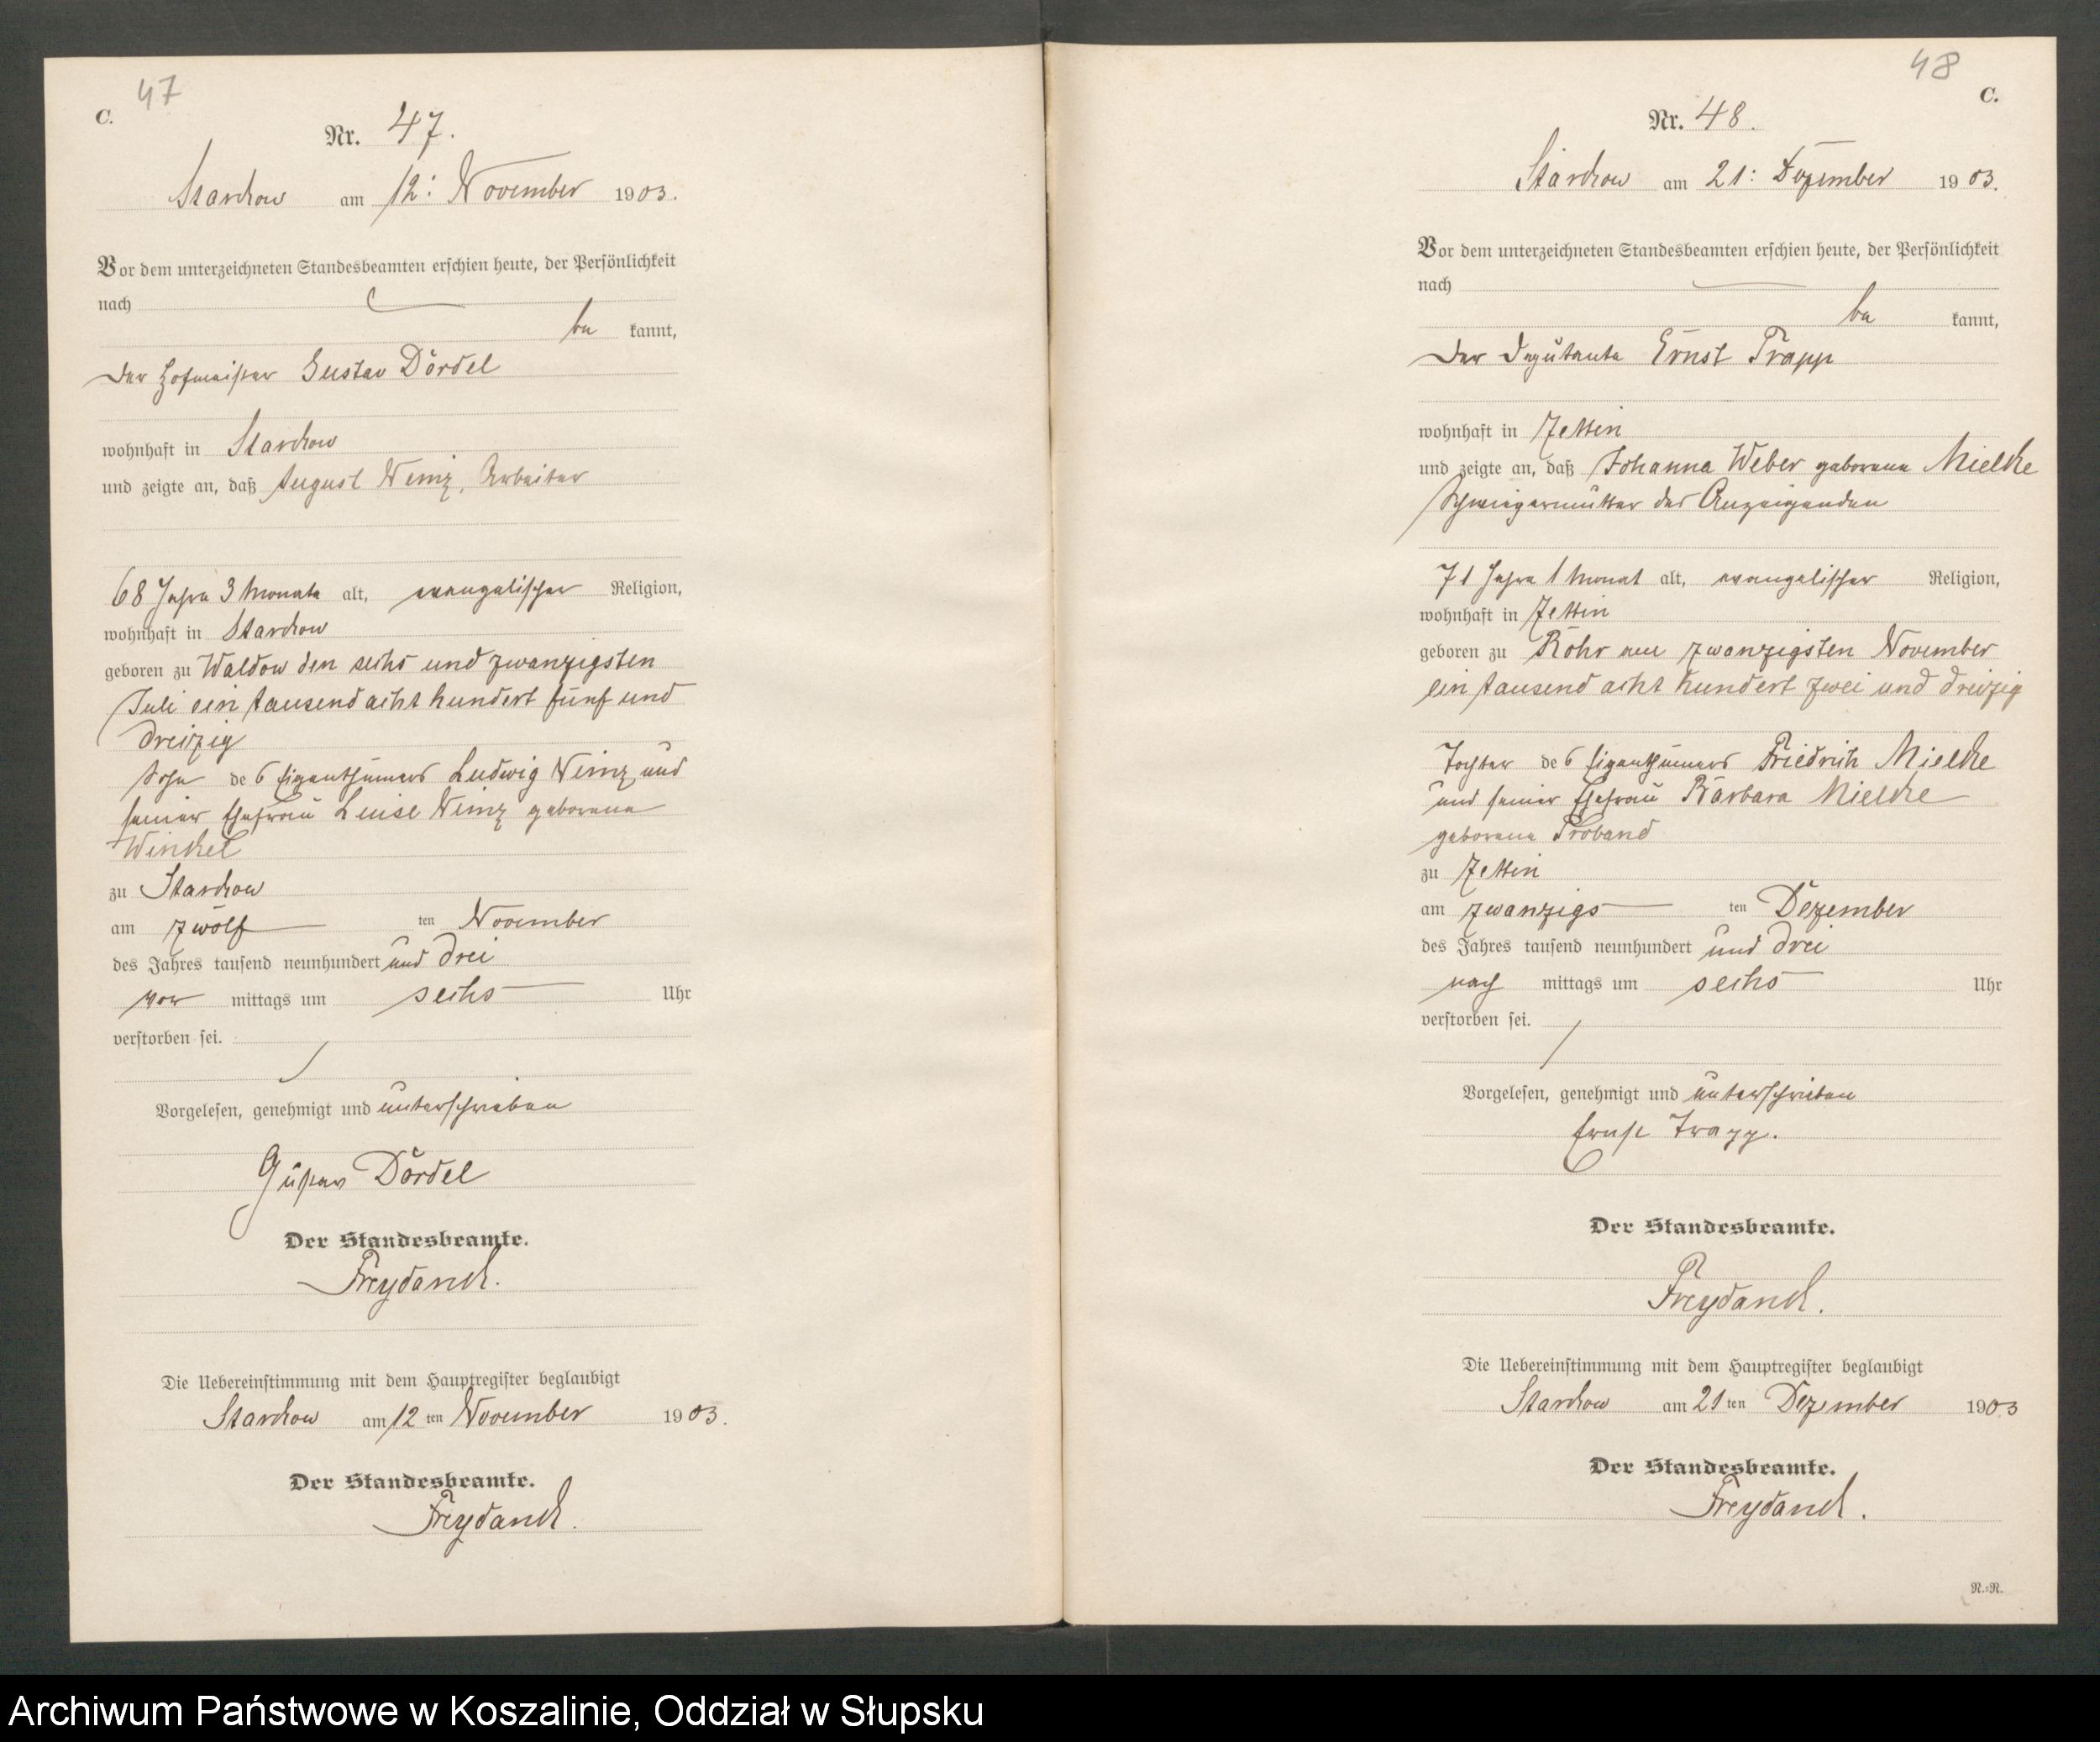 47
C.
Nr. 47.
Starckow am 12: November 1903.
Vor dem unterzeichneten Standesbeamten erschien heute, der Persönlichkeit
nach
be kannt,
der Hofmeister Gustav Dördel
wohnhaft in Starckow
und zeigte an, daß August Wenz, Arbeiter
68 Jahre 3 Monate alt, evangelischer Religion,
wohnhaft in Starckow
geboren zu Waldow den sechs und zwanzigsten
Juli ein tausend acht hundert fünf und
dreizig
Sohn des Eigenthümers Ludwig Wenz und
seiner Ehefrau Luise Wenz geborene
Winckel
zu Starckow
am zwölf ten November
des Jahres tausend neunhundert und drei
vor mittags um sechs Uhr
verstorben sei.
Vorgelesen, genehmigt und unterschrieben
Gustav Dördel
Der Standesbeamte.
Freydanck.
Die Uebereinstimmung mit dem Hauptregister beglaubigt
Starckow am 12 ten November 1903.
Der Standesbeamte.
Freydanck.
48
C.
Nr. 48.
Starckow am 21: Dezember 1903.
Vor dem unterzeichneten Standesbeamten erschien heute, der Persönlichkeit
nach
be kannt,
der Deputante Ernst Trapp
wohnhaft in Zettin
und zeigte an, daß Johanna Weber geborene Mielcke
Schwiegermutter des Anzeigenden
71 Jahre 1 Monat alt, evangelischer Religion,
wohnhaft in Zettin
geboren zu Röhr am zwanzigsten November
ein tausend acht hundert zwei und dreizig
Tochter des Eigenthümers Friedrich Mielcke
und seiner Ehefrau Barbara Mielcke
geborene Proband
zu Zettin
am zwanzigs ten Dezember
des Jahres tausend neunhundert und drei
nach mittags um sechs Uhr
verstorben sei.
Vorgelesen, genehmigt und unterschrieben
Ernst Trapp.
Der Standesbeamte.
Freydanck.
Die Uebereinstimmung mit dem Hauptregister beglaubigt
Starckow am 21 ten Dezember 1903
Der Standesbeamte.
Freydanck.
N.=N.
Archiwum Państwowe w Koszalinie, Oddział w Słupsku